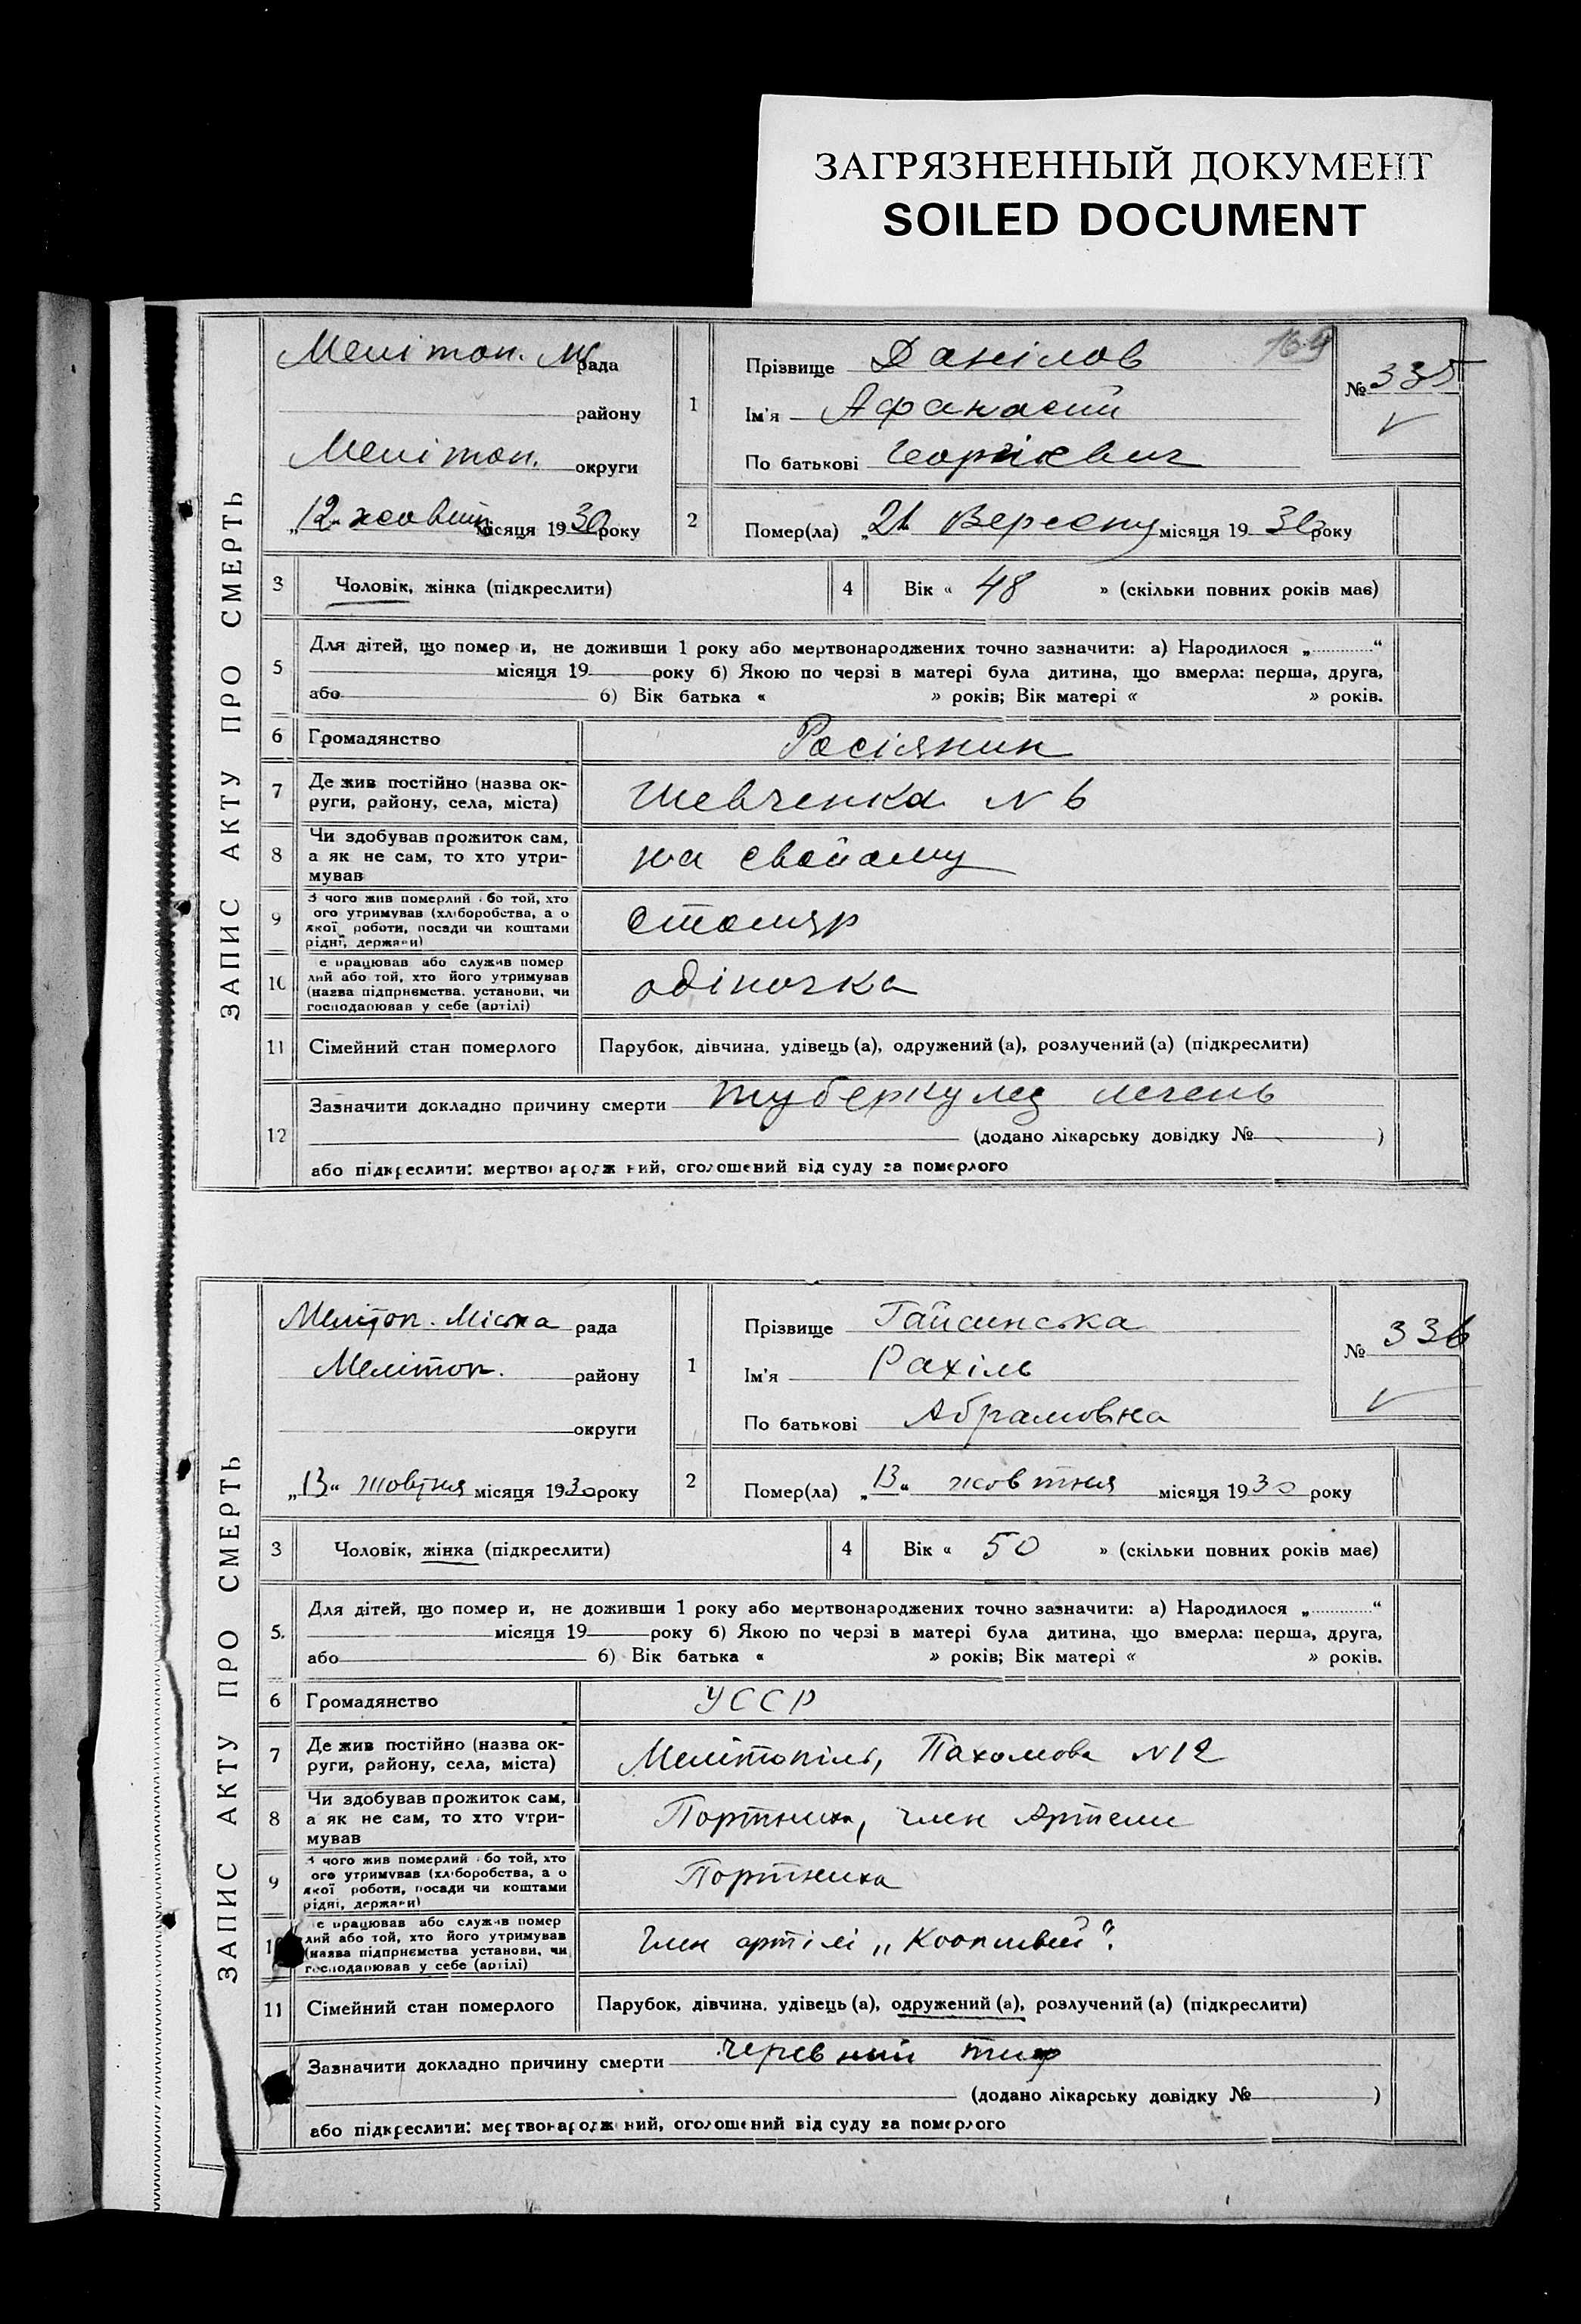 ЗАГРЯЗНЕННЫЙ ДОКУМЕНТ
SOILED DOCUMENT
ЗАПИС АКТУ ПРО СМЕРТЬ
Мелітоп. М рада
району
Мелітоп. округи
„12“ жовтн місяця 1930 року
1
Прізвище Данілов
169
Ім'я Афанасий
По батькові Георгієвич
№ 335
2
Помер(ла) „21 Вересня місяця 1930 року
3 Чоловік, жінка (підкреслити)
4 Вік « 48 » (скільки повних років має)
5 Для дітей, що помер и, не доживши 1 року або мертвонароджених точно зазначити: а) Народилося „............“
місяця 19 року б) Якою по черзі в матері була дитина, що вмерла: перша, друга,
або б) Вік батька « » років; Вік матері « » років.
6 Громадянство Росіянин
7 Де жив постійно (назва ок-
руги, району, села, міста) Шевченка N 6
8 Чи здобував прожиток сам,
а як не сам, то хто утри-
мував на свойому
9 З чого жив померлий бо той, хто
ого утримував (хліборобства, а о
якої роботи, посади чи коштами
рідні, держави) столяр
10 е працював або служив помер
лий або той, хто його утримував
(назва підприємства, установи, чи
господарював у себе (артілі) одіночка
11 Сімейний стан померлого Парубок, дівчина, удівець (а), одружений (а), розлучений (а) (підкреслити)
12 Зазначити докладно причину смерти туберкулез легень
(додано лікарську довідку № )
або підкреслити: мертвонародж ний, оголошений від суду за померлого
ЗАПИС АКТУ ПРО СМЕРТЬ
Мелітоп. Міська рада
Мелітоп. району
округи
„13“ жовтня місяця 1930 року
1
Прізвище Гайсинська
Ім'я Рахіль
По батькові Абрамовна
№ 336
2
Помер(ла) „13“ жовтня місяця 1930 року
3 Чоловік, жінка (підкреслити)
4 Вік « 50 » (скільки повних років має)
5. Для дітей, що помер и, не доживши 1 року або мертвонароджених точно зазначити: а) Народилося „............“
місяця 19 року б) Якою по черзі в матері була дитина, що вмерла: перша, друга,
або б) Вік батька « » років; Вік матері « » років.
6 Громадянство УССР
7 Де жив постійно (назва ок-
руги, району, села, міста) Мелітопіль, Пахомова N 12
8 Чи здобував прожиток сам,
а як не сам, то хто утри-
мував Портниха, член Артели
9 З чого жив померлий бо той, хто
ого утримував (хліборобства, а о
якої роботи, посади чи коштами
рідні, держави) Портниха
1 е працював або служив помер
лий або той, хто його утримував
(назва підприємства, установи, чи
господарював у себе (артілі) Член артілі „Коопшвей“.
11 Сімейний стан померлого Парубок, дівчина, удівець (а), одружений (а), розлучений (а) (підкреслити)
Зазначити докладно причину смерти черевний тиф
(додано лікарську довідку № )
або підкреслити: мертвонародж ний, оголошений від суду за померлого